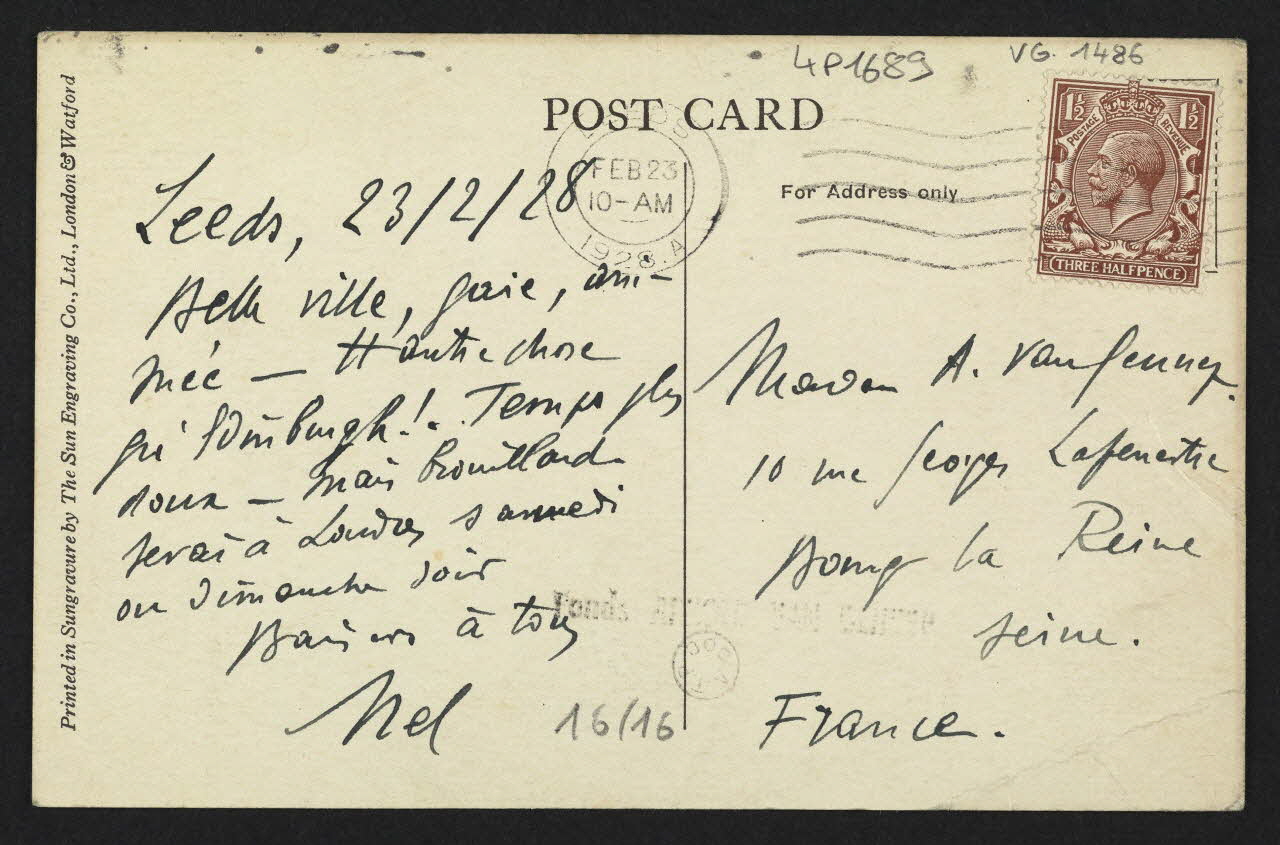 4P1689
VG. 1486
POST CARD
For Address only.
LEEDS
FEB 23
10-AM
1928.A
1½ 1½
POSTAGE REVENUE
THREE HALFPENCE
Leeds, 23/2/28
Belle ville, gaie, ani-
mée — Autre chose
qu'Edinburgh!.. Temps plus
doux — mais brouillard
serai à Londres samedi
ou dimanche soir
Baisers à tous
Nel
16/16
Madame A. van Gennep.
10 rue Georges Lafenestre
Bourg la Reine
Seine.
France.
Printed in Sungravure by The Sun Engraving Co., Ltd., London & Watford